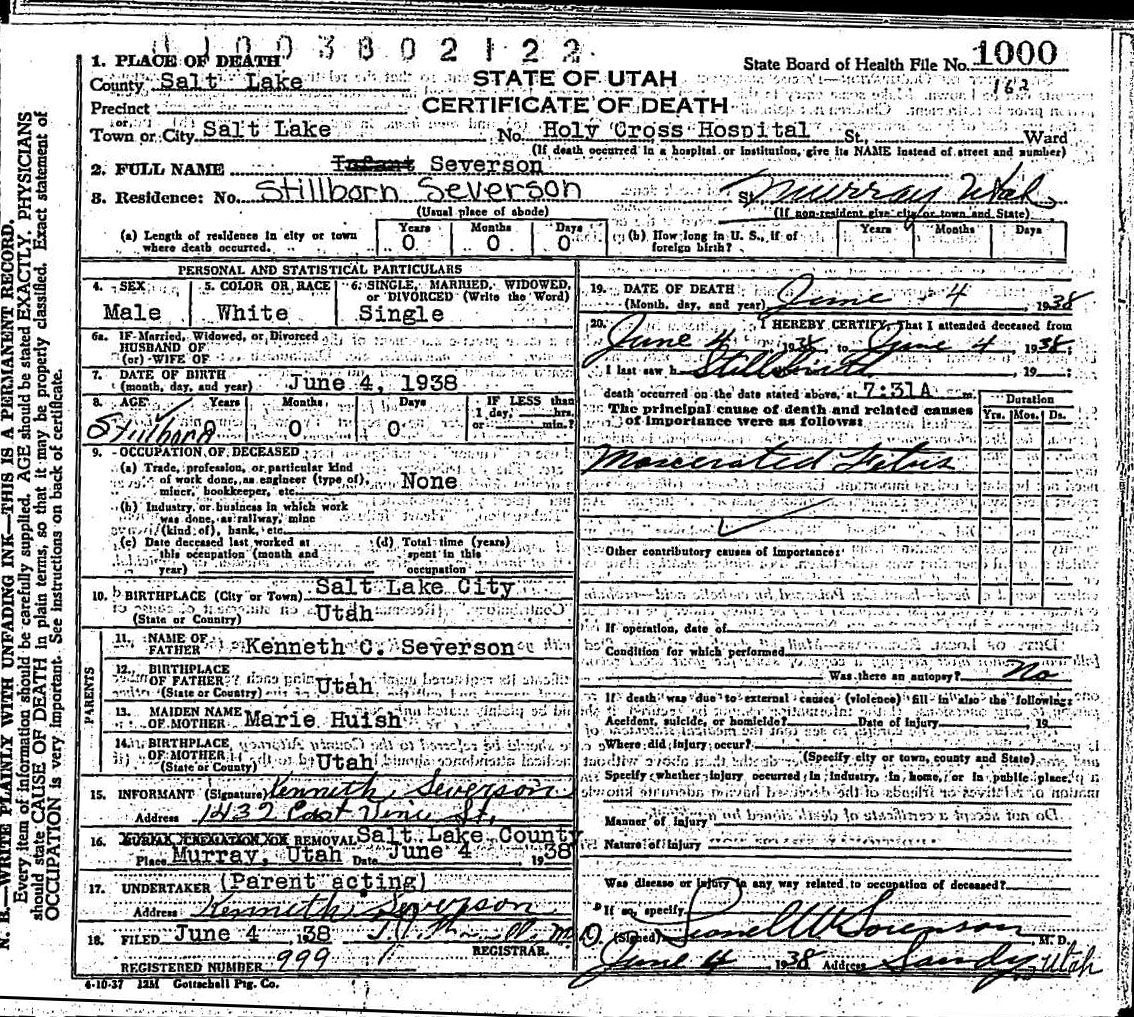 01003802122
1. PLACE OF DEATH
State Board of Health File No. 1000
County Salt Lake
STATE OF UTAH
162
Precinct
CERTIFICATE OF DEATH
or
Town or City Salt Lake No. Holy Cross Hospital St. Ward
(If death occurred in a hospital or institution, give its NAME instead of street and number)
2. FULL NAME Infant Severson
3. Residence: No. Stillborn Severson St. Murray Utah
(Usual place of abode) (If non-resident give city or town and State)
(a) Length of residence in city or town where death occurred. Years 0 Months 0 Days 0 (b) How long in U. S., if of foreign birth? Years Months Days
PERSONAL AND STATISTICAL PARTICULARS
4. SEX Male
5. COLOR OR RACE White
6. SINGLE, MARRIED, WIDOWED, or DIVORCED (Write the Word) Single
6a. IF Married, Widowed, or Divorced
HUSBAND OF
(or) WIFE OF
7. DATE OF BIRTH
(month, day, and year) June 4, 1938
8. AGE Years Months Days IF LESS than
1 day, hrs.
or min.?
Stillborn 0 0
9. OCCUPATION OF DECEASED
(a) Trade, profession, or particular kind
of work done, as engineer (type of),
miner, bookkeeper, etc. None
(b) Industry or business in which work
was done, as railway, mine
(kind of), bank, etc.
(c) Date deceased last worked at
this occupation (month and
year)
(d) Total time (years)
spent in this
occupation
10. BIRTHPLACE (City or Town) Salt Lake City
(State or Country) Utah
PARENTS
11. NAME OF
FATHER Kenneth C. Severson
12. BIRTHPLACE
OF FATHER
(State or Country) Utah
13. MAIDEN NAME
OF MOTHER Marie Huish
14. BIRTHPLACE
OF MOTHER
(State or County) Utah
15. INFORMANT (Signature) Kenneth Severson
Address 1432 East Vine St.
16. BURIAL CREMATION OR REMOVAL Salt Lake County
Place Murray, Utah Date June 4 1938
17. UNDERTAKER (Parent acting)
Address Kenneth Severson
18. FILED June 4 1938 M.D.
REGISTRAR.
REGISTERED NUMBER 999
4-10-37 12M Gottschall Ptg. Co.
19. DATE OF DEATH
(Month, day, and year) June 4 1938
20. I HEREBY CERTIFY, That I attended deceased from
June 4 1938 to June 4 1938;
I last saw h Stillbirth 19 ;
death occurred on the date stated above, at 7:31A m.
The principal cause of death and related causes
of importance were as follows:
Duration
Yrs. Mos. Ds.
Mascerated Fetus
Other contributory causes of importance:
If operation, date of
Condition for which performed
Was there an autopsy? No
If death was due to external causes (violence) fill in also the following:
Accident, suicide, or homicide? Date of injury 19
Where did injury occur?
(Specify city or town, county and State)
Specify whether injury occurred in industry, in home, or in public place.
Manner of injury
Nature of injury
Was disease or injury in any way related to occupation of deceased?
If so, specify
(Signed) Lionel W Sorenson, M. D.
June 4 1938 Address Sandy, Utah
N. B.—WRITE PLAINLY WITH UNFADING INK—THIS IS A PERMANENT RECORD.
Every item of information should be carefully supplied. AGE should be stated EXACTLY. PHYSICIANS
should state CAUSE OF DEATH in plain terms, so that it may be properly classified. Exact statement of
OCCUPATION is very important. See instructions on back of certificate.